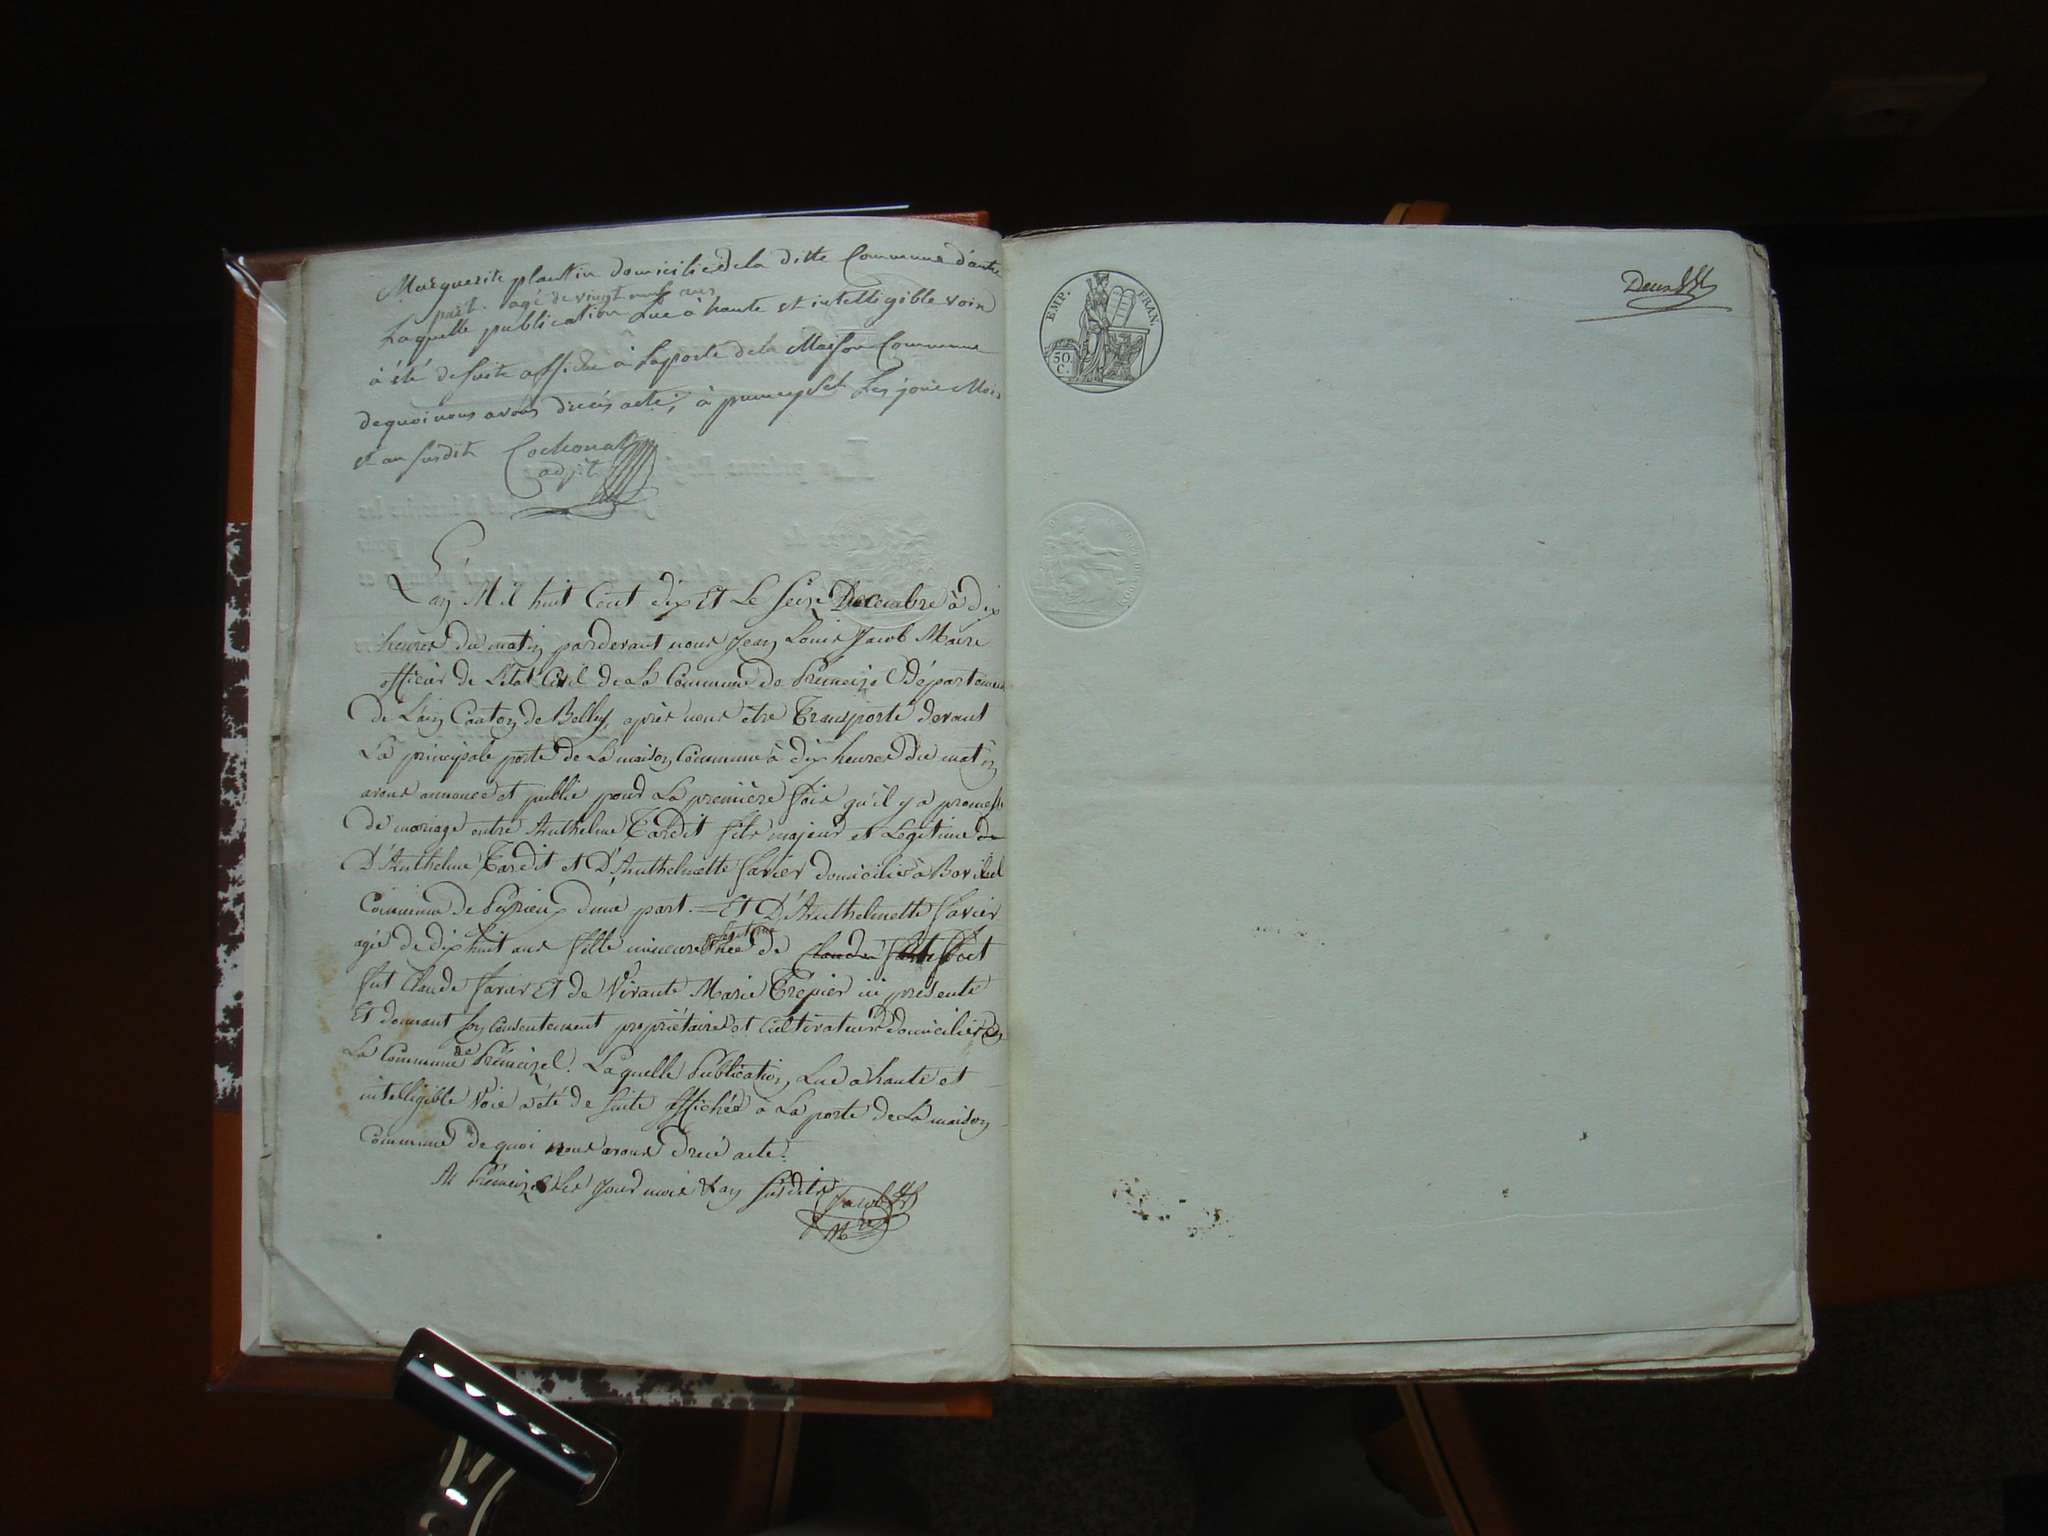 Marguerite plantin domicilié de la ditte Commune d'autre
part. agé de vingt neuf ans
Laquelle publication Lue à haute et intelligible voix
à été de suite affiche à la porte de la Maison Commune
de quoi nous avons dressés acte, à premeyzel Les jour Mois
et an susdit Cochonat
adjt
L'an Mil huit Cent dix Et Le seize Decembre à dix
heures du matin pardevant nous Jean Louis Jacob Maire
officier de L'état Civil de La Commune de Prémeizel Département
de L'ain Canton de Belley, après nous être Transporté devant
La principale porte de La maison Commune à dix heures du matin
avons annoncé et publié pour La première fois qu'il y a promesse
de mariage entre Anthelme Tardit fils majeur et Legitime de
D'Anthelme Tardit et D'Anthelmette Favier domicilié à
Commune de Peyrieux d'une part. — Et D'Anthelmette Favier
agée de dix huit ans fille mineure Legitime de Claude
fut Claude Favier Et de Vivante Marie Trepier ici présente
Et donnant son Consentement propriétaires et Cultivateurs domiciliés en
La Commune de Prémeizel. Laquelle Publication Lue a haute et
intelligible Voie a été de suite affichée a La porte de La maison
Commune de quoi nous avons dressé acte.
A Prémeizel Les Jour mois & an susdits Jacob
Mre
EMP. FRAN.
50
C.
Deux